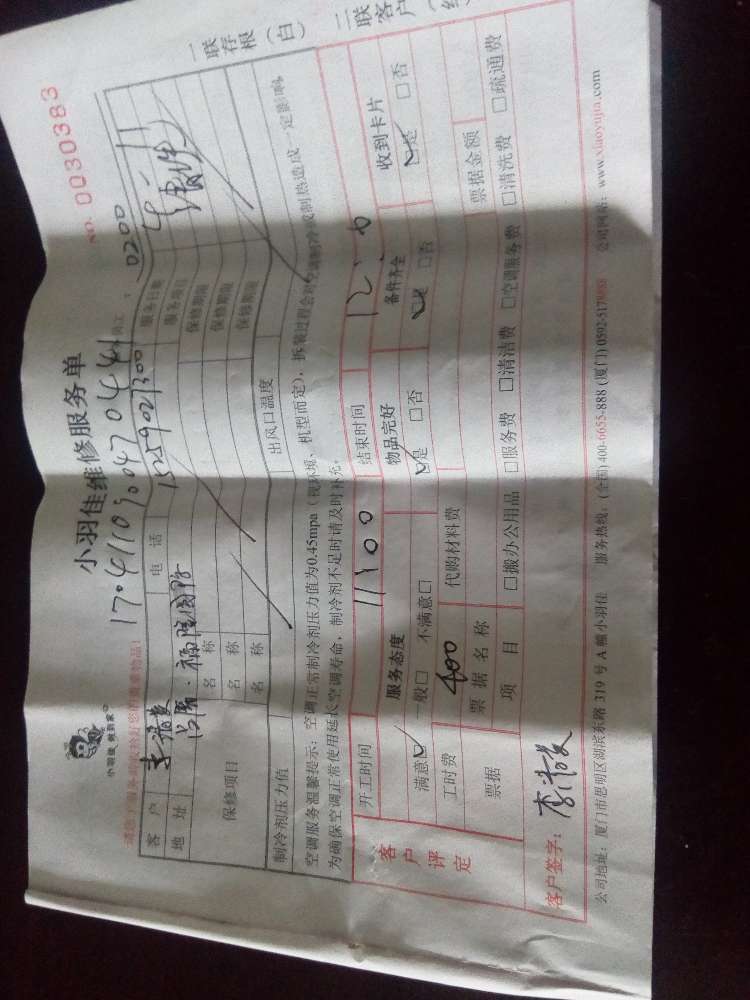 小羽佳 做到家
小羽佳维修服务单
NO. 0030383
一联存根(白)
二联客户
17.4110300470441
员工: 0200
客户
电话 15259021300
服务日期
地址
服务项目
保修项目
名称
保修期限
名称
保修期限
名称
保修期限
制冷剂压力值
出风口温度
空调服务温馨提示:空调正常制冷剂压力值为0.45mpa(视环境、机型而定),拆装过程会对空调制冷或制热造成一定影响
为确保空调正常使用延长空调寿命,制冷剂不足时请及时补充。
客户评定
开工时间 11:00 结束时间
服务态度 物品完好 备件齐全 收到卡片
满意☑ 一般□ 不满意□ ☑是 □否 ☑是 □否 ☑是 □否
工时费 400 代购材料费
票据 票据名称 票据金额
项目 □搬办公用品 □服务费 □清洁费 □空调服务费 □清洗费 □疏通费
客户签字:
公司地址:厦门市思明区湖滨东路 319 号 A 幢小羽佳 服务热线:(全国)400-6655-888 (厦门)0592-5178888 公司网站:www.xiaoyujia.com